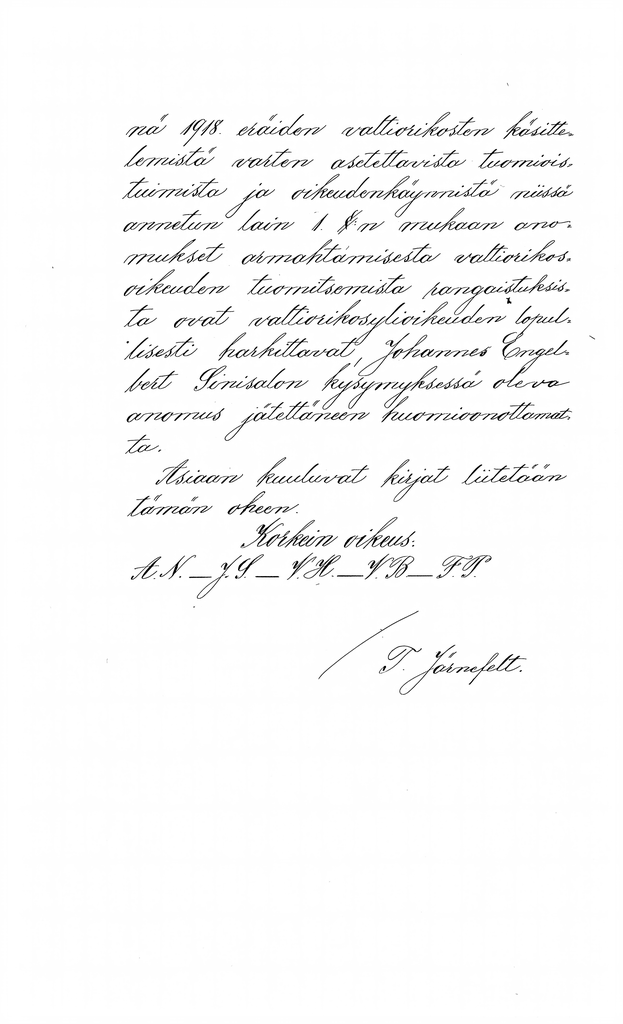 nä 1918. eräiden valtiorikosten käsitte-
lemistä varten asetettavista tuomiois-
tuimista ja oikeudenkäynnistä niissä
annetun lain 1. §:n mukaan ano-
mukset armahtamisesta valtiorikos-
oikeuden tuomitsemista rangaistuksis-
ta ovat valtiorikosylioikeuden lopul-
lisesti harkittavat, Johannes Engel-
bert Sinisalon kysymyksessä oleva
anomus jätettäneen huomioonottamat-
ta.
Asiaan kuuluvat kirjat liitetään
tämän oheen.
Korkein oikeus:
A.N. — J.S. — V.H. — V.B — F.P.
T. Järnefelt.